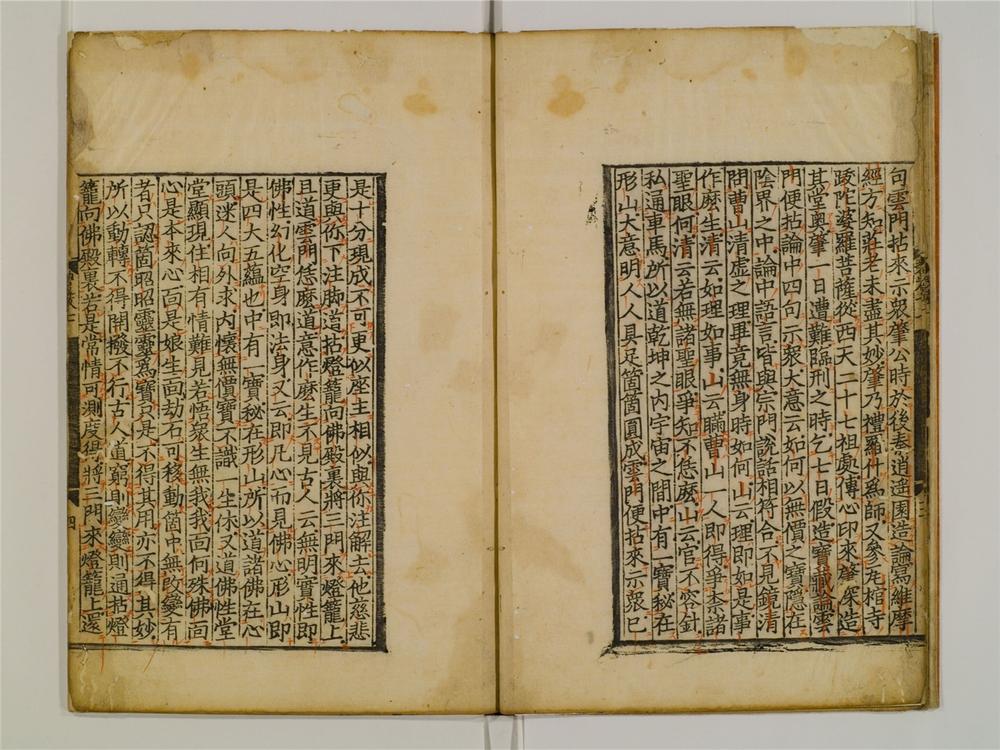 句雲門拈來示衆肇公時於後秦逍遙園造論寫維摩
經方知莊老未盡其妙肇乃禮羅什爲師又參瓦棺寺
跋陀婆羅菩薩從西天二十七祖處傳心印來肇深造
其堂奧肇一日遭難臨刑之時乞七日假造寶藏論雲
門便拈論中四句示衆大意云如何以無價之寶隱在
陰界之中論中語言皆與宗門說話相符合不見鏡清
問曹山清虛之理畢竟無身時如何山云理即如是事
作麼生清云如理如事山云瞞曹山一人即得爭柰諸
聖眼何清云若無諸聖眼爭知不恁麼山云官不容針
私通車馬所以道乾坤之內宇宙之間中有一寶秘在
形山大意明人人具足箇箇圓成雲門便拈來示衆已
是十分現成不可更似座主相似與你注解去他慈悲
更與你下注脚道拈燈籠向佛殿裏將三門來燈籠上
且道雲門恁麼道意作麼生不見古人云無明實性即
佛性幻化空身即法身又云即凡心而見佛心形山即
是四大五蘊也中有一寶秘在形山所以道諸佛在心
頭迷人向外求內懷無價寶不識一生休又道佛性堂
堂顯現住相有情難見若悟衆生無我我面何殊佛面
心是本來心面是娘生面劫石可移動箇中無改變有
者只認箇昭昭靈靈爲寶只是不得其用亦不得其妙
所以動轉不得開撥不行古人道窮則變變則通拈燈
籠向佛殿裏若是常情可測度得將三門來燈籠上還
四